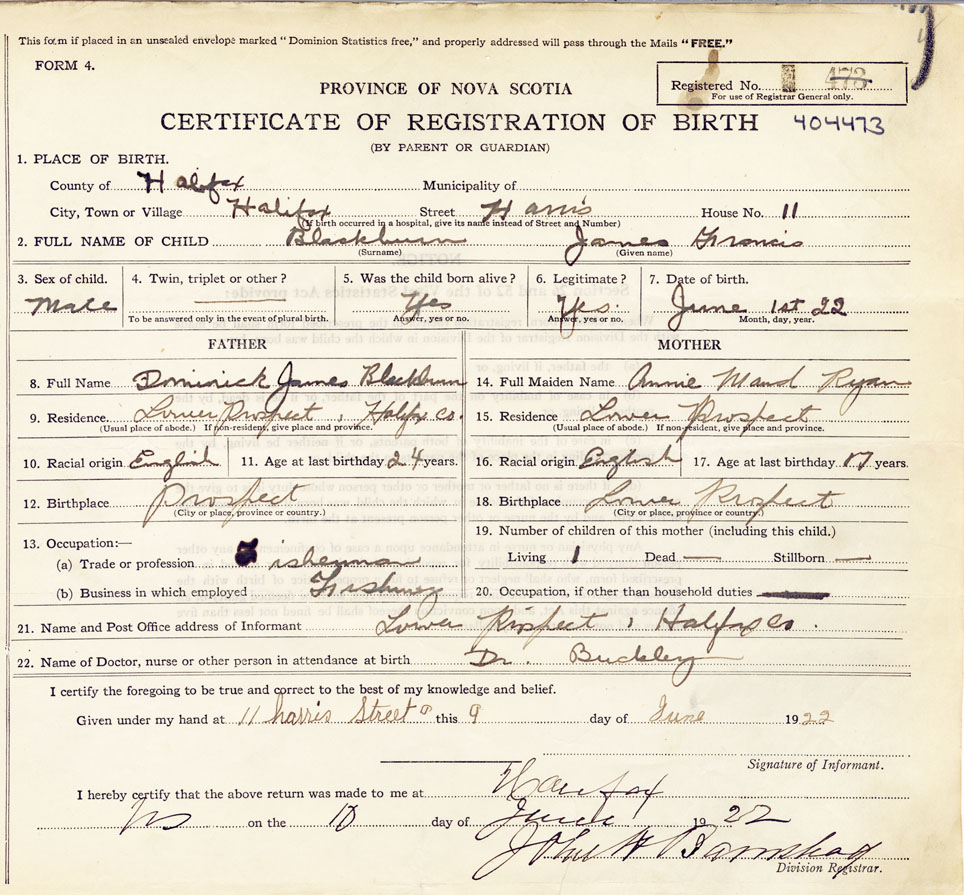 This form if placed in an unsealed envelope marked "Dominion Statistics free," and properly addressed will pass through the Mails "FREE."
FORM 4.
Registered No. 478
For use of Registrar General only.
PROVINCE OF NOVA SCOTIA
CERTIFICATE OF REGISTRATION OF BIRTH 404473
(BY PARENT OR GUARDIAN)
1. PLACE OF BIRTH.
County of Halifax Municipality of
City, Town or Village Halifax Street Harris House No. 11
(If birth occurred in a hospital, give its name instead of Street and Number)
2. FULL NAME OF CHILD Blackburn James Francis
(Surname) (Given name)
3. Sex of child. 4. Twin, triplet or other? 5. Was the child born alive? 6. Legitimate? 7. Date of birth.
Male Yes Yes June 1st 22
To be answered only in the event of plural birth. Answer, yes or no. Answer, yes or no. Month, day, year.
FATHER MOTHER
8. Full Name Dominick James Blackburn 14. Full Maiden Name Annie Maud Ryan
9. Residence. Lower Prospect, Halifax Co. 15. Residence Lower Prospect
(Usual place of abode.) If non-resident, give place and province. (Usual place of abode.) If non-resident, give place and province.
10. Racial origin English 11. Age at last birthday 24 years. 16. Racial origin English 17. Age at last birthday years.
12. Birthplace Prospect 18. Birthplace Lower Prospect
(City or place, province or country.) (City or place, province or country.)
19. Number of children of this mother (including this child.)
13. Occupation:—
Living 1 Dead — Stillborn —
(a) Trade or profession isherman
(b) Business in which employed Fishing 20. Occupation, if other than household duties
21. Name and Post Office address of Informant Lower Prospect, Halifax Co.
22. Name of Doctor, nurse or other person in attendance at birth Dr. Buckley
I certify the foregoing to be true and correct to the best of my knowledge and belief.
Given under my hand at 11 harris Street this 9 day of June 1922
Signature of Informant.
I hereby certify that the above return was made to me at Halifax
NS on the 10 day of June 1922
John A
Division Registrar.